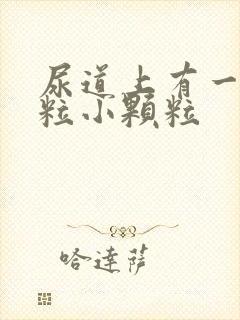 尿道上有一
粒小顆粒
哈達薩